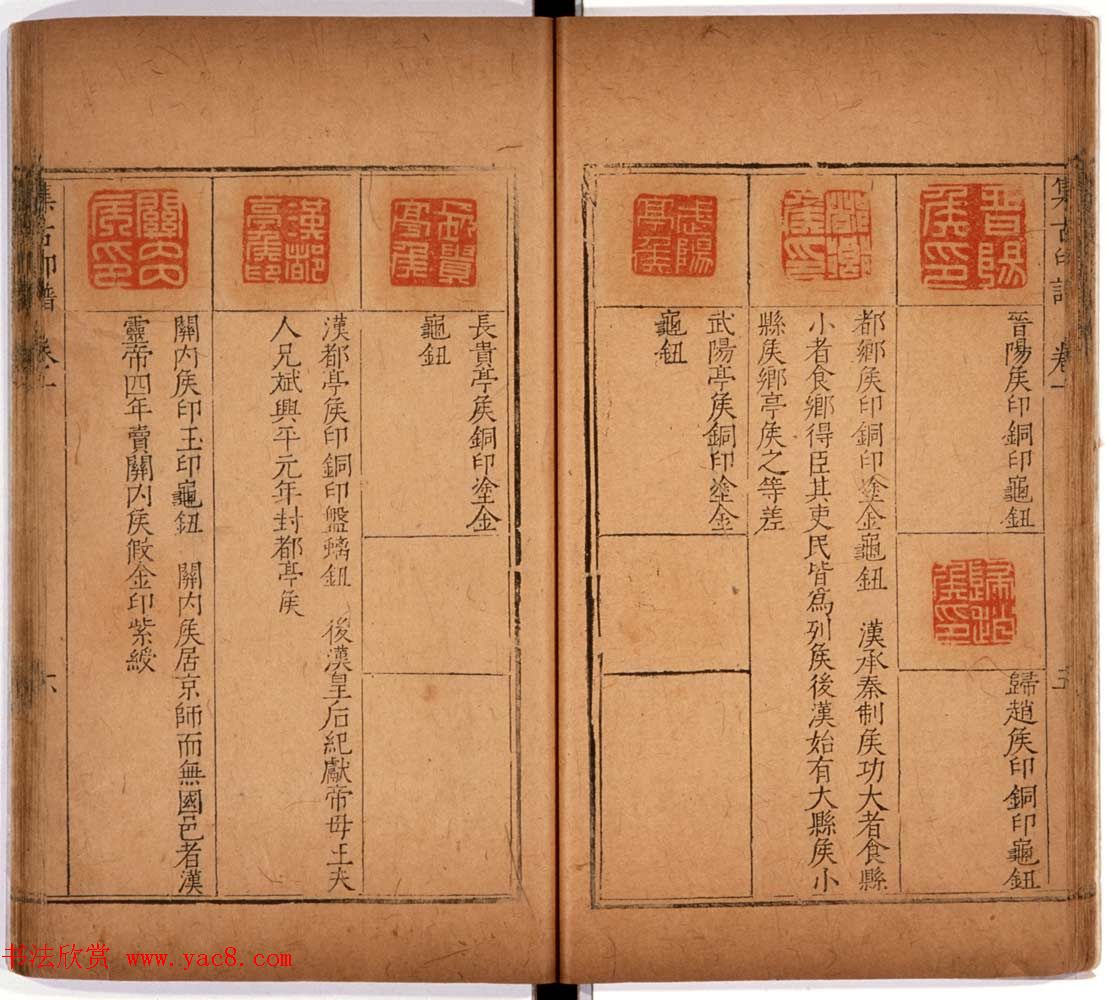 集古印譜 卷一 五
晉陽
侯印
晉陽侯印銅印龜鈕
歸趙
侯印
歸趙侯印銅印龜鈕
都鄉
侯印
都鄉侯印銅印塗金龜鈕 漢承秦制侯功大者食縣
小者食鄉得臣其吏民皆為列侯後漢始有大縣侯小
縣侯鄉亭侯之等差
武陽
亭侯
武陽亭侯銅印塗金
龜鈕
長貴
亭侯
長貴亭侯銅印塗金
龜鈕
漢都
亭侯印
漢都亭侯印銅印盤螭鈕 後漢皇后紀獻帝母王夫
人兄斌興平元年封都亭侯
關內
侯印
關內侯印玉印龜鈕 關內侯居京師而無國邑者漢
靈帝四年賣關內侯假金印紫綬
集古印譜 卷一 六
书法欣赏 www.yac8.com